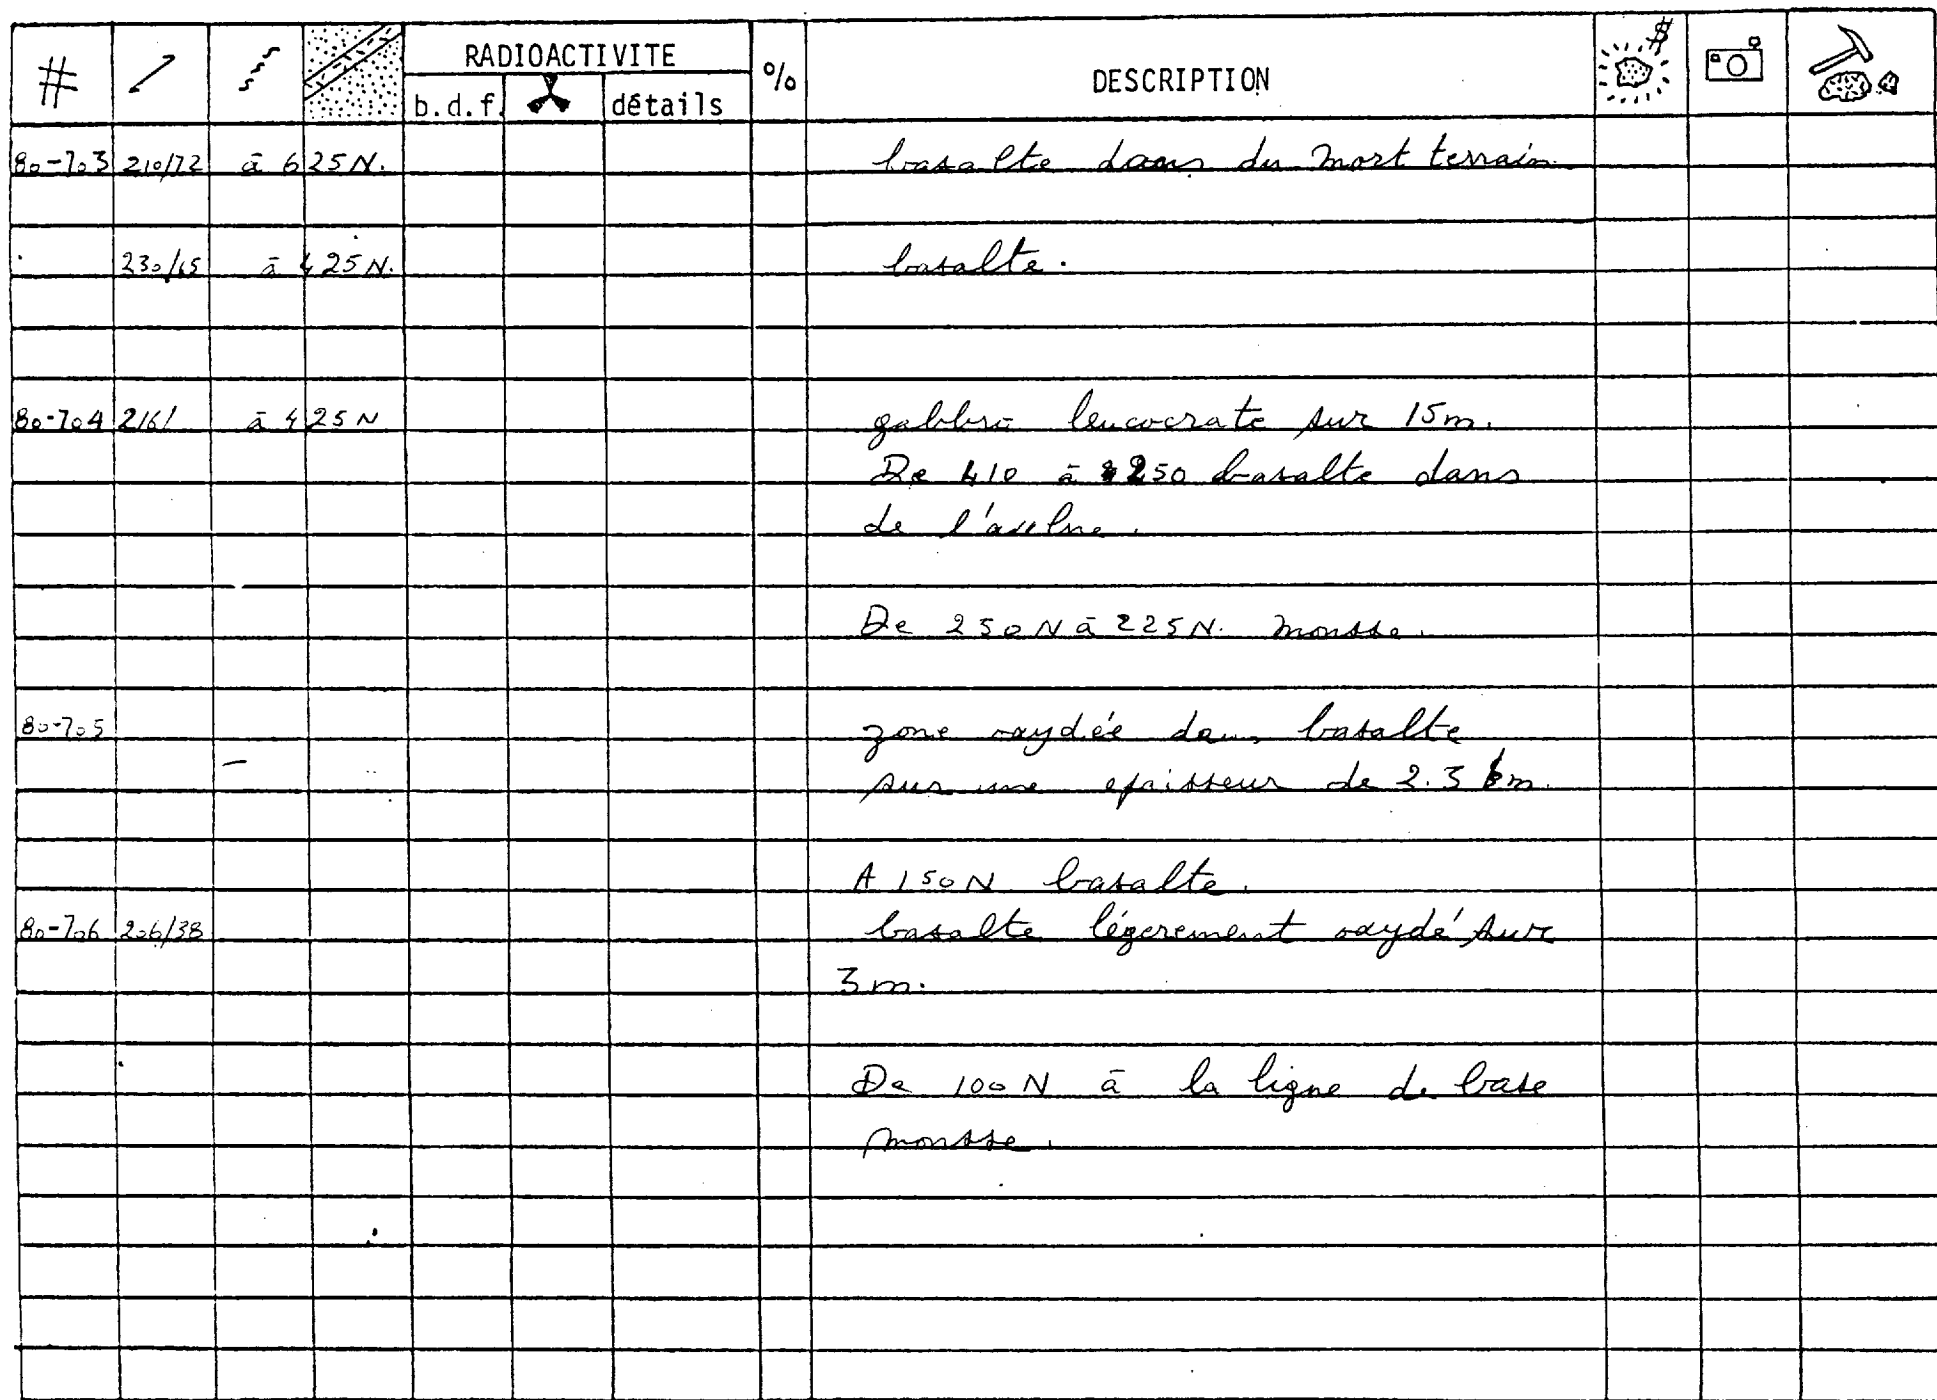 # RADIOACTIVITE % DESCRIPTION $
b.d.f. détails
80-703 210/72 à 625N. basalte dans du mort terrain
230/65 à 425N. basalte.
80-704 216/ à 425N gabbro leucocrate sur 15m.
De 410 à 250 basalte dans
de l'
De 250N à 225N. mousse.
80-705 zone oxydée dans basalte
sur une epaisseur de 2.3 m.
A 150N basalte.
80-706 206/38 basalte légerement oxydé sur
3m.
De 100N à la ligne de base
mousse.